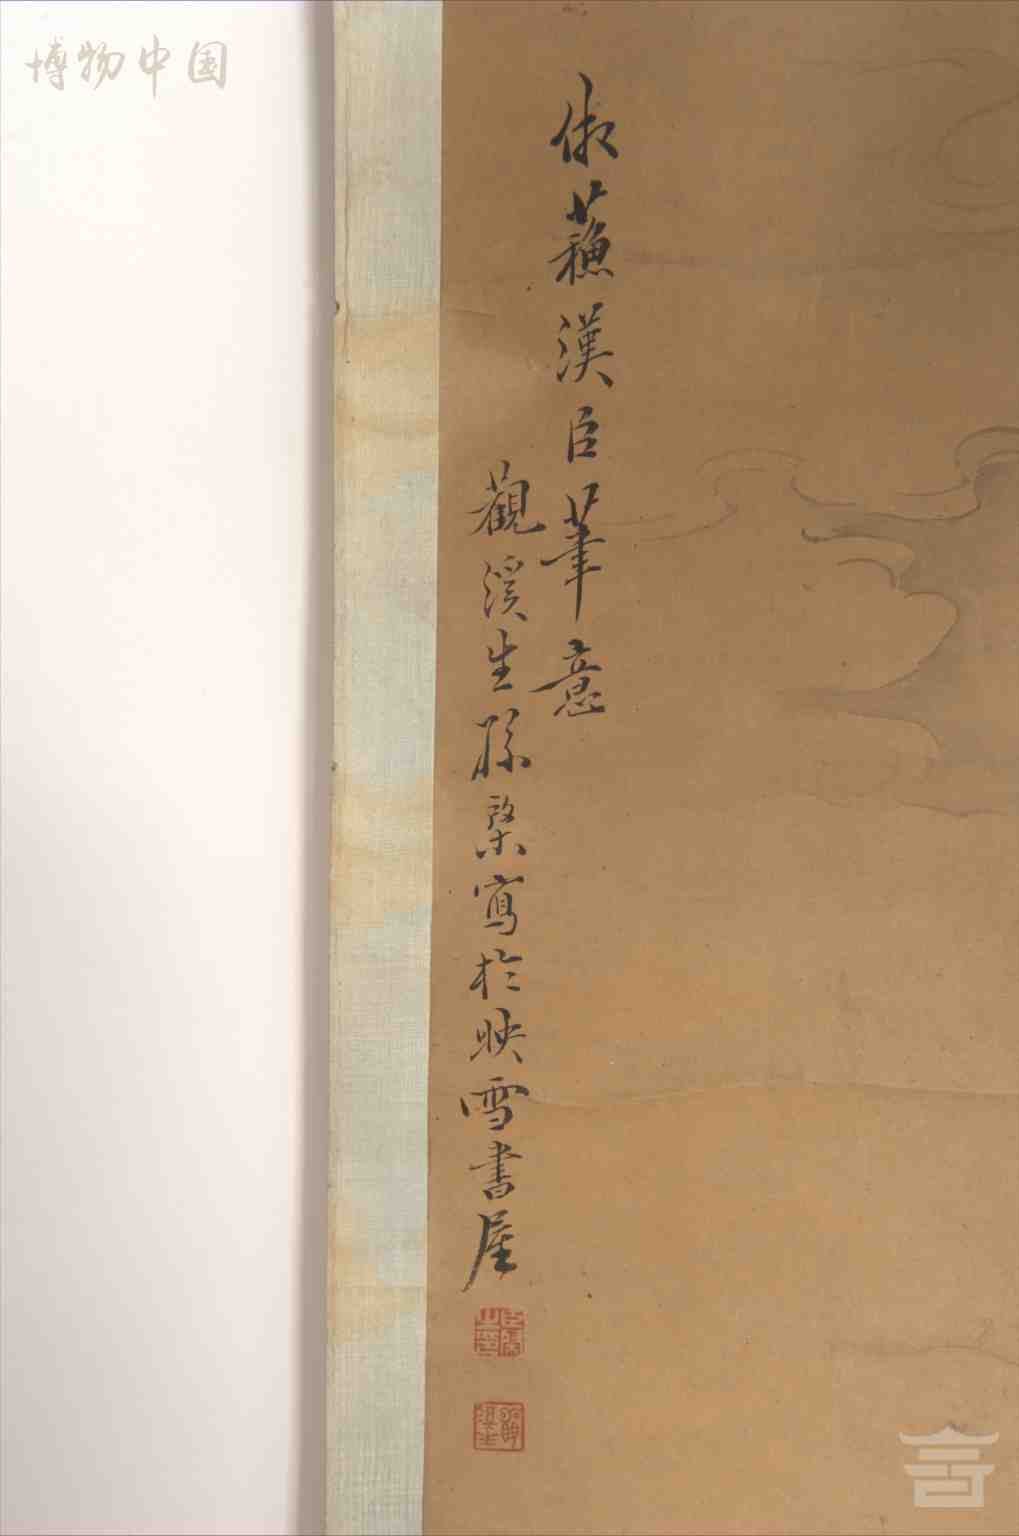 博物中国
倣蘓漢臣筆意
觀溪生孫棨寫於映雪書屋